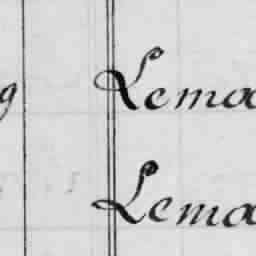 g Lema
Lema